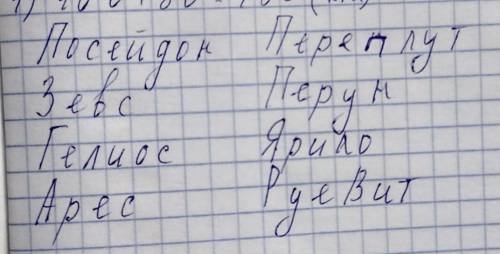 Посейдон Переплут
Зевс Перун
Гелиос Ярило
Арес Руевит